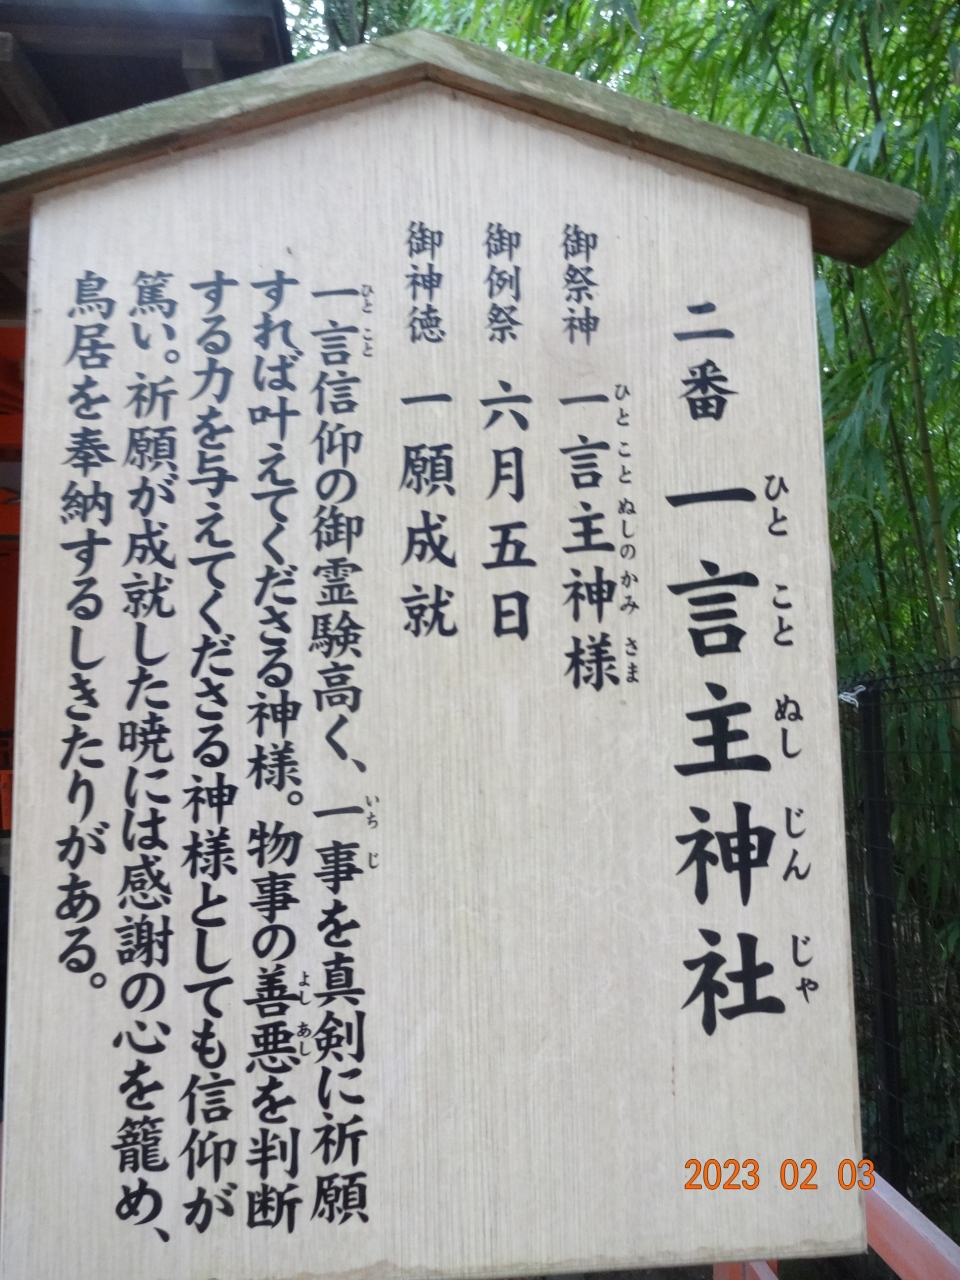 二番 一言主神社
ひと こと ぬし じん じゃ
御祭神 一言主神様
ひと こと ぬしの かみ さま
御例祭 六月五日
御神徳 一願成就
一言信仰の御霊験高く、一事を真剣に祈願
ひと こと いち じ
すれば叶えてくださる神様。物事の善悪を判断
よし あし
する力を与えてくださる神様としても信仰が
篤い。祈願が成就した暁には感謝の心を籠め、
鳥居を奉納するしきたりがある。
2023 02 03